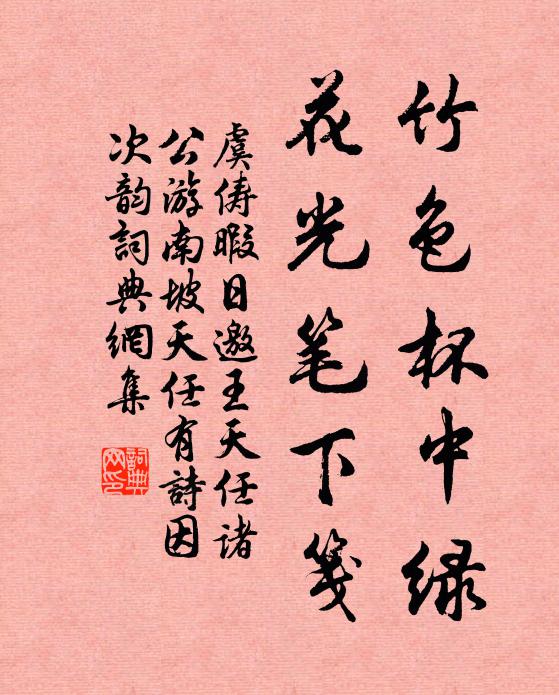 竹色杯中绿
花光笔下笺
虞俦暇日邀王天任诸
公游南坡天任有詩因
次韵詞典網集
詞典
网印